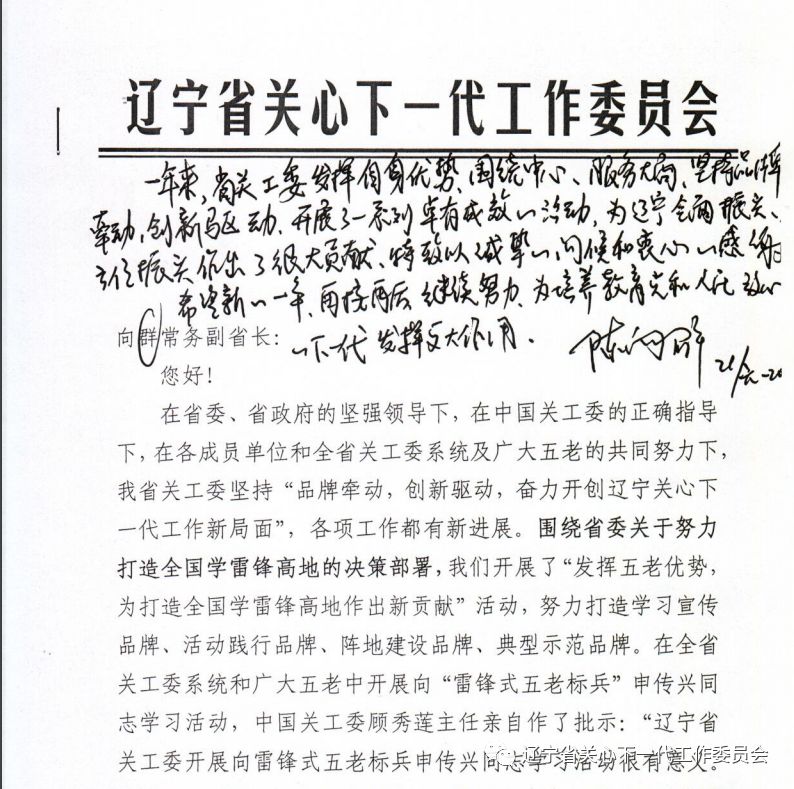 辽宁省关心下一代工作委员会
一年来，省关工委发挥自身优势、围绕中心、服务大局、坚持品牌
牵动，创新驱动，开展了一系列卓有成效的活动，为辽宁全面振兴、
全方位振兴作出了很大贡献。特致以诚挚的问候和衷心的感谢
希望新的一年，再接再厉 继续努力，为培养教育党和人民 放心
的下一代 发挥更大作用。
陈向群
21/
向群常务副省长：
您好！
在省委、省政府的坚强领导下，在中国关工委的正确指导
下，在各成员单位和全省关工委系统及广大五老的共同努力下，
我省关工委坚持“品牌牵动，创新驱动，奋力开创辽宁关心下
一代工作新局面”，各项工作都有新进展。围绕省委关于努力
打造全国学雷锋高地的决策部署，我们开展了“发挥五老优势，
为打造全国学雷锋高地作出新贡献”活动，努力打造学习宣传
品牌、活动践行品牌、阵地建设品牌、典型示范品牌。在全省
关工委系统和广大五老中开展向“雷锋式五老标兵”申传兴同
志学习活动，中国关工委顾秀莲主任亲自作了批示：“辽宁省
关工委开展向雷锋式五老标兵申传兴同志学习活动很有意义。
辽宁省关心下一代工作委员会